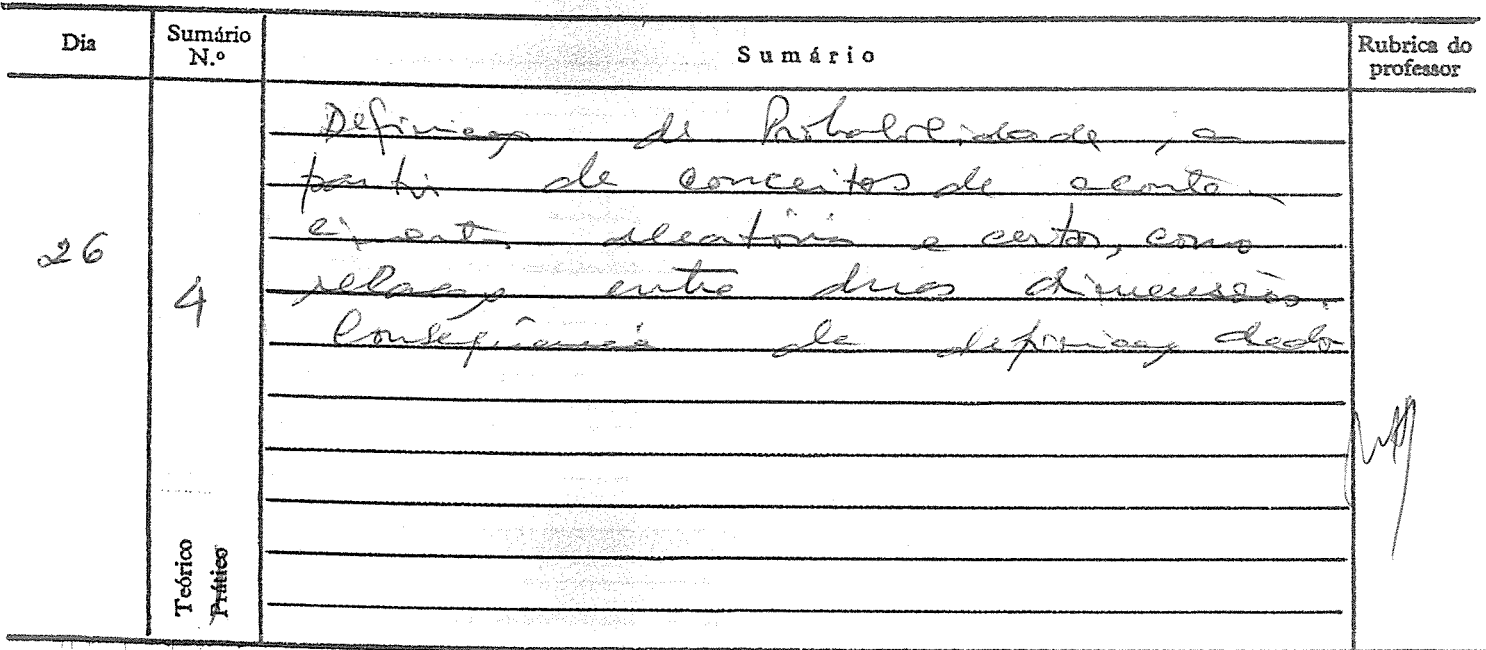 Dia
Sumário N.º
Sumário
Rubrica do professor
26
4
Teórico
Prático
Definição de Probabilidade, a
partir de conceitos de aconte-
cimento aleatório e certo, como
relação entre duas dimensões.
Consequência da definição dada